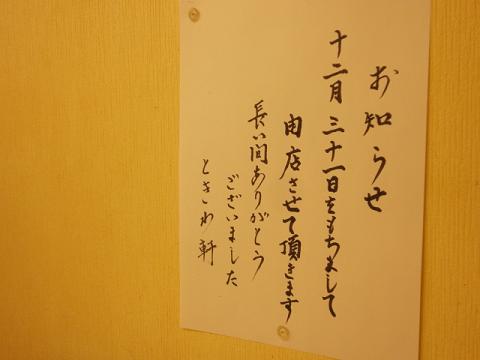 お知らせ
十二月三十一日をもちまして
閉店させて頂きます
長い間ありがとう
ございました
ときわ軒